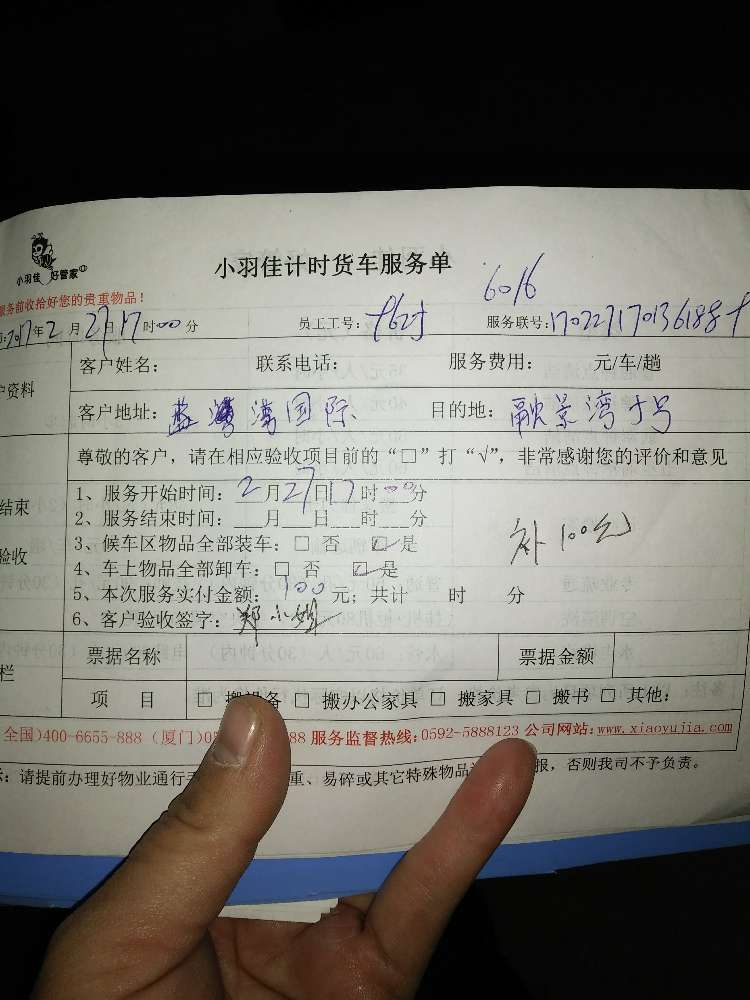 小羽佳 好管家
小羽佳计时货车服务单
6016
服务前收拾好您的贵重物品！
2017年2月27日17时00分 员工工号： 服务联号：
户资料 客户姓名： 联系电话： 服务费用： 元/车/趟
客户地址：蓝湾国际 目的地：融景湾 号
尊敬的客户，请在相应验收项目前的“□”打“√”，非常感谢您的评价和意见
结束
验收
1、服务开始时间：2月27日17时00分
2、服务结束时间：___月___日___时___分
3、候车区物品全部装车：□ 否 ☑ 是
补100元
4、车上物品全部卸车：□ 否 ☑ 是
5、本次服务实付金额：100元；共计 时 分
6、客户验收签字：郑小姐
栏 票据名称 票据金额
项 目 □ 搬设备 □ 搬办公家具 □ 搬家具 □ 搬书 □ 其他：
全国)400-6655-888 (厦门)05 88 服务监督热线:0592-5888123 公司网站:www.xiaoyujia.com
示：请提前办理好物业通行 重、易碎或其它特殊物品 报，否则我司不予负责。